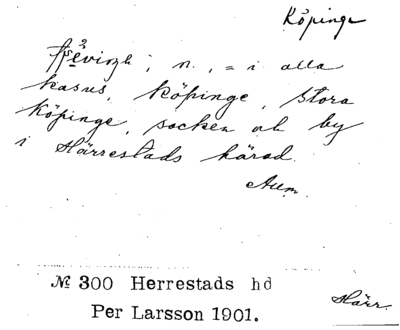 Köpinge
n., = i alla
kasus, Köpinge, Stora
Köpinge, socken och by
i Härrestads härad.
№ 300 Herrestads hd
Per Larsson 1901.
Härr.